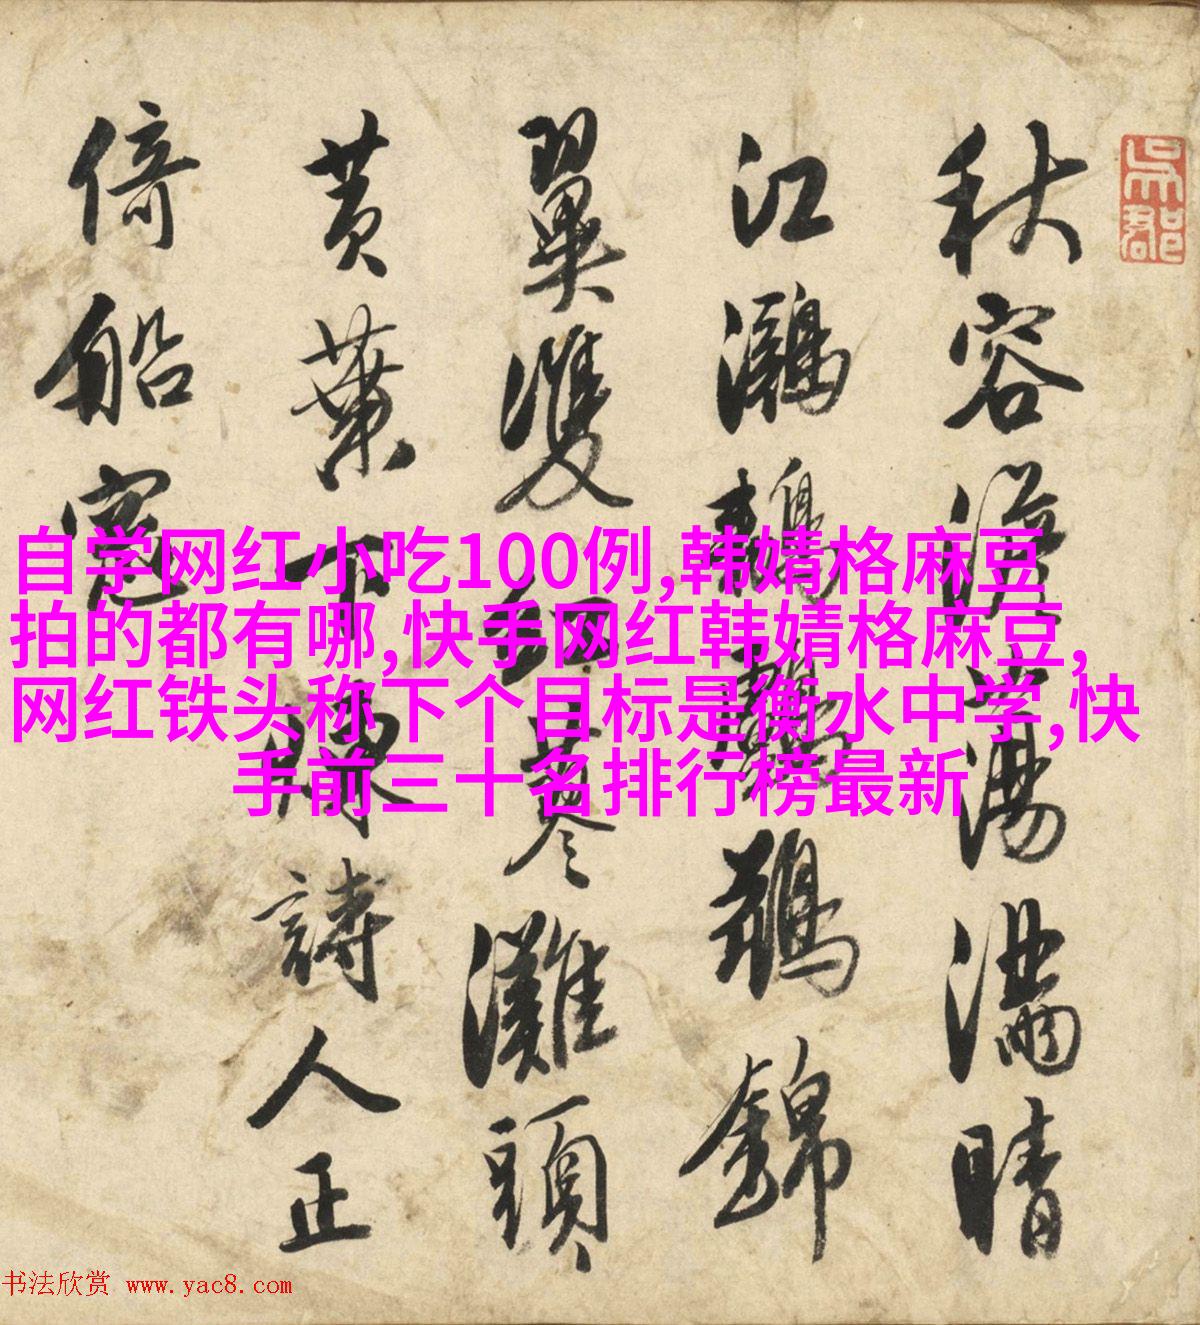 吳郡
秋容蕩滿晴
江鸂鶒鸕鶿錦
翼雙紅蓼灘頭
黃葉下詩人正
倚船窓
自学网红小吃100例,韩婧格麻豆
拍的都有哪,快手网红韩婧格麻豆,
网红铁头称下个目标是衡水中学,快
手前三十名排行榜最新
书法欣赏 www.yac8.com